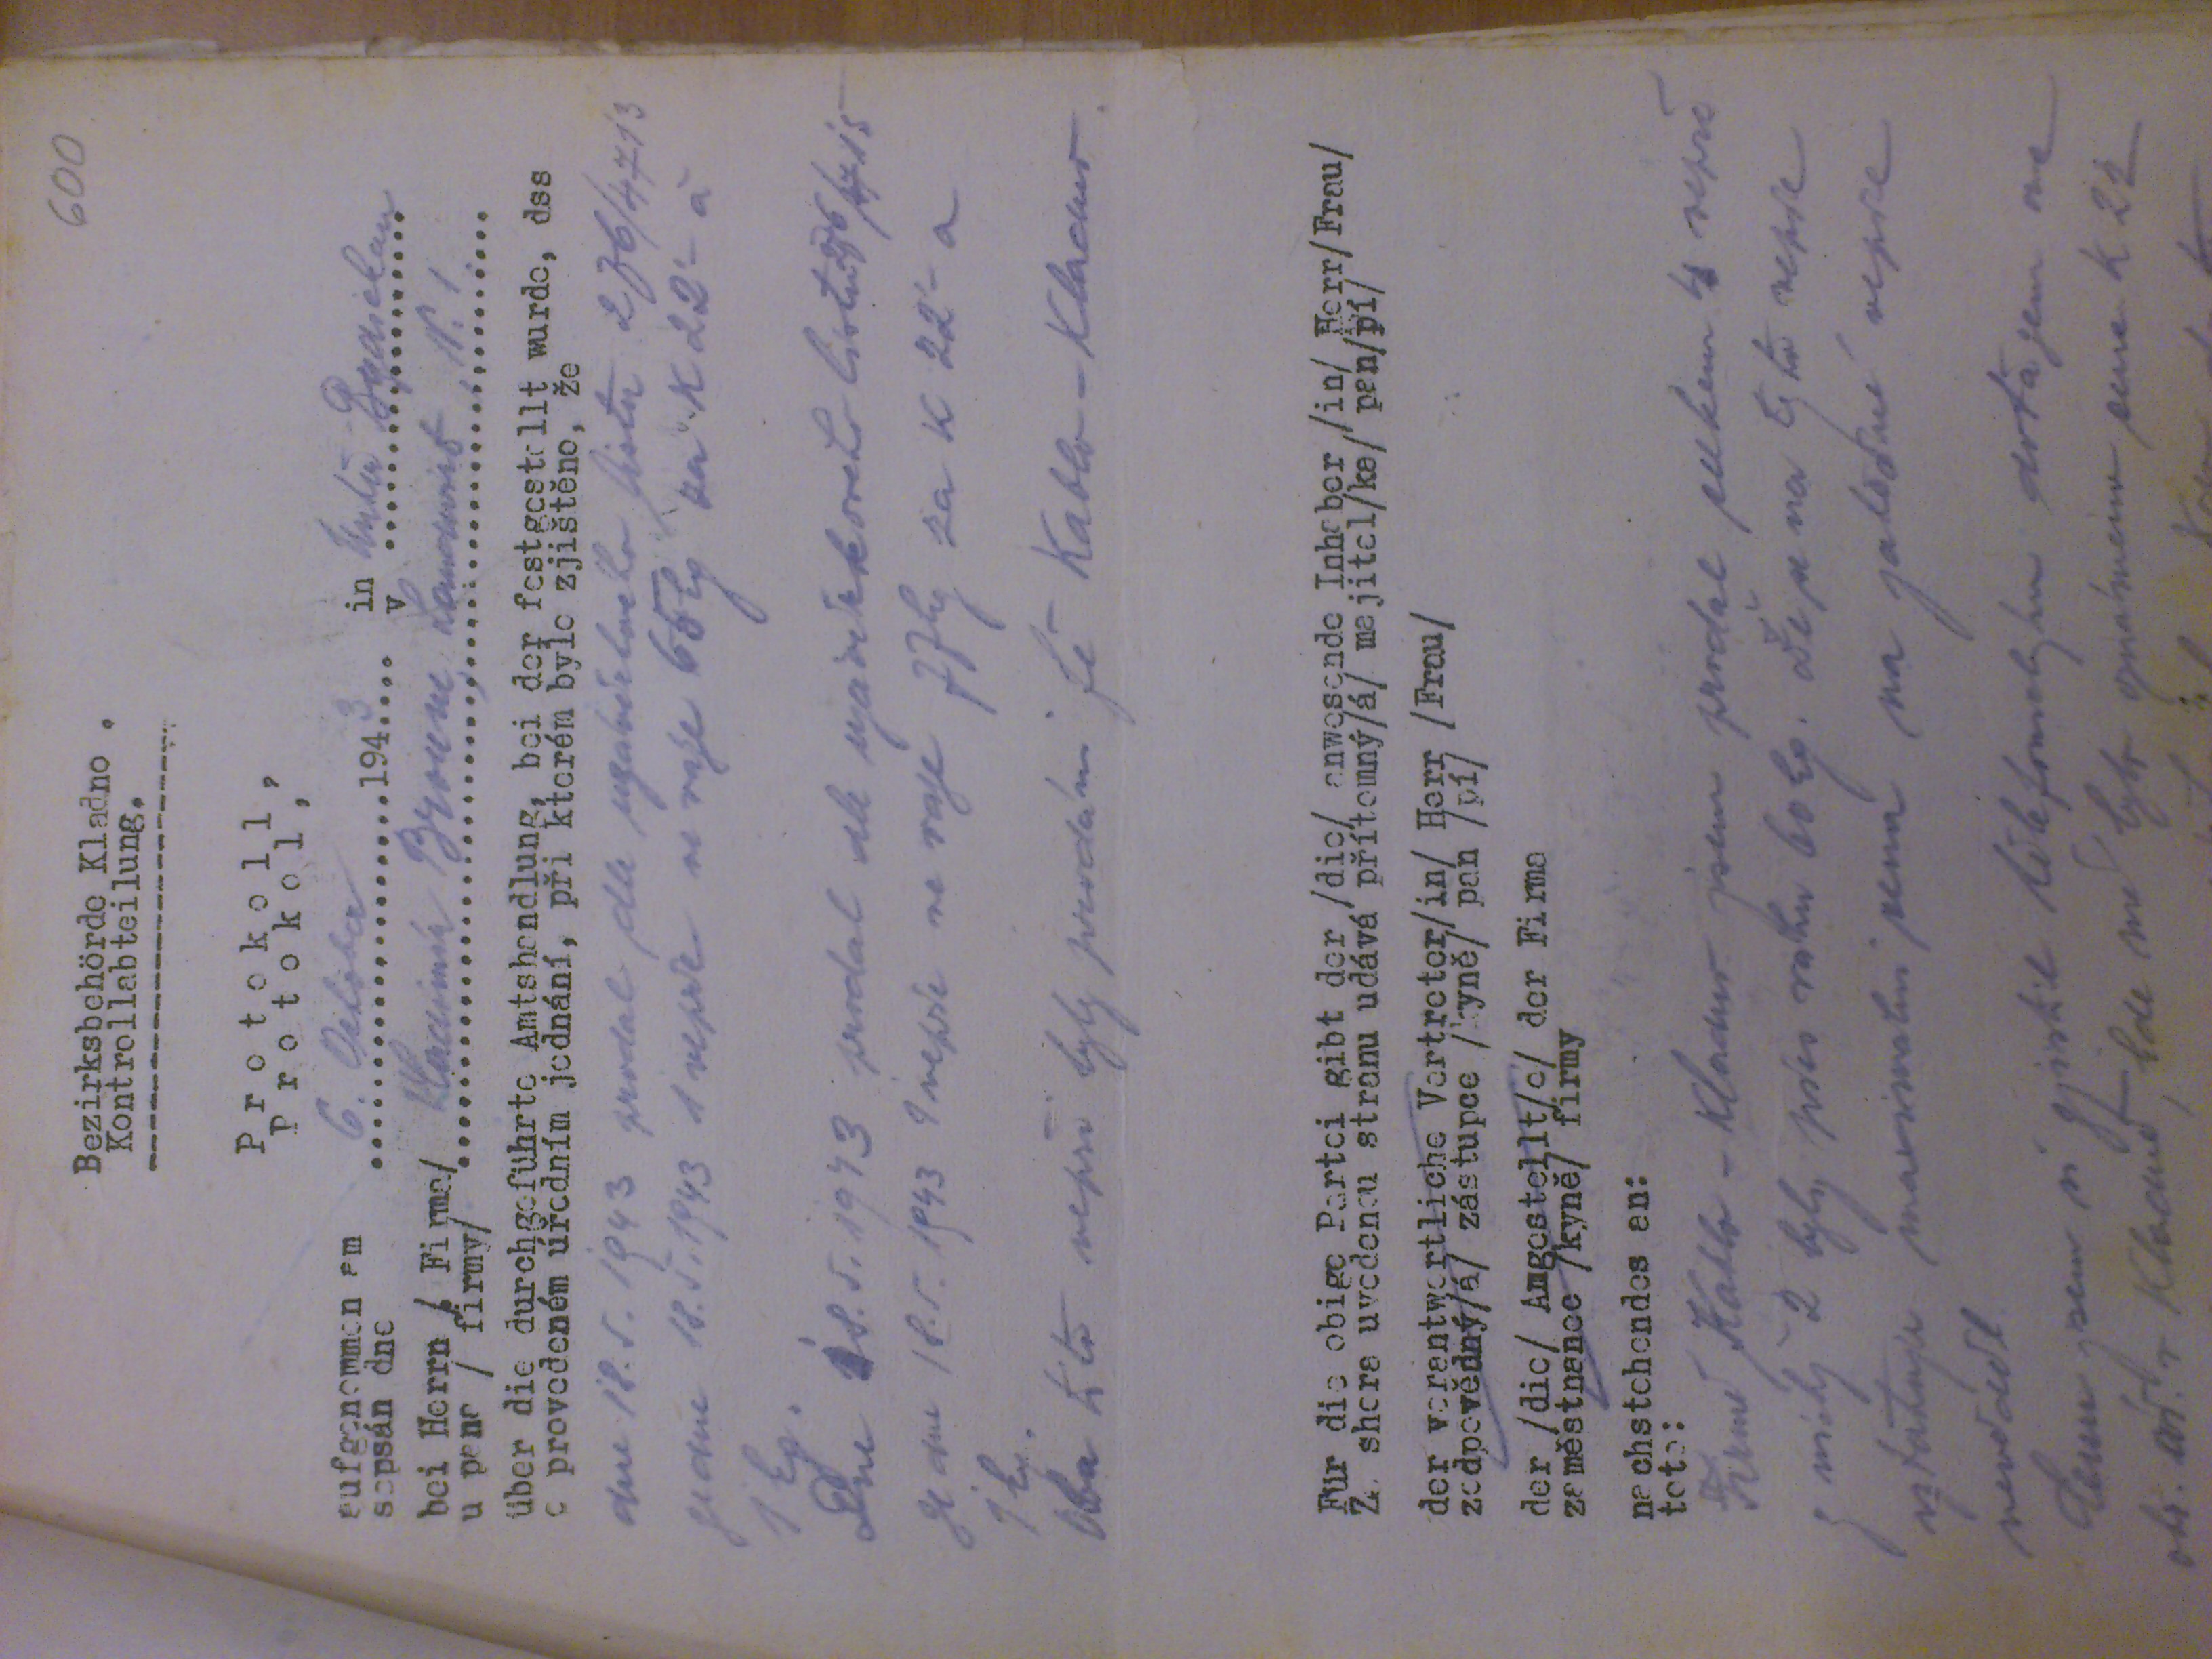 600
Bezirksbehörde Kladno .
Kontrollabteilung.
Protokoll,
Protokol,
aufgenommen am 6. October 1943 in Unter Bydschau
sepsán dne v
bei Herrn / Firma/ Vladimír Broum, Landwirt, N. 1.
u pana / firmy/
über die durchgeführte Amtshandlung, bei der festgestellt wurde, dss
o provedeném úředním jednání, při kterém bylo zjištěno, že
dne 18.5. 1943 prodal dle uzávěrkového listu 276/4713
ze dne 18.5.1943 1 vepře ve váze 65 kg za K 22'- á
1 kg.
Dne 18.5. 1943 prodal dle uzávěrkového listu 276/4715
ze dne 18.5. 1943 1 vepře ve váze 77 kg za K 22'- a
1 kg.
Oba tito vepři byly prodáni fě Kablo - Kladno.
Für die obige Partei gibt der /die/ anwesende Inhaber /in/ Herr/Frau/
Za shora uvedenou stranu udává přítomný/á/ majitel/ka/ pan/pí/
der verantwortliche Vertreter/in/ Herr /Frau/
zodpovědný/á/ zástupce /kyně/ pan /pí/
der /die/ Angestellt/e/ der Firma
zaměstnanec /kyně/ firmy
nachstehendes an:
toto:
Firmě Kablo - Kladno jsem prodal celkem 4 vepře
z nichž 2 byly přes váhu 60 kg. Že se na tyto vepře
vztahuje maximální cena na jateční vepře
nevěděl.
Cenu jsem si zjistil telefonickým dotazem na
okr. úř. v Kladně, kde mě bylo oznámeno cena K 22